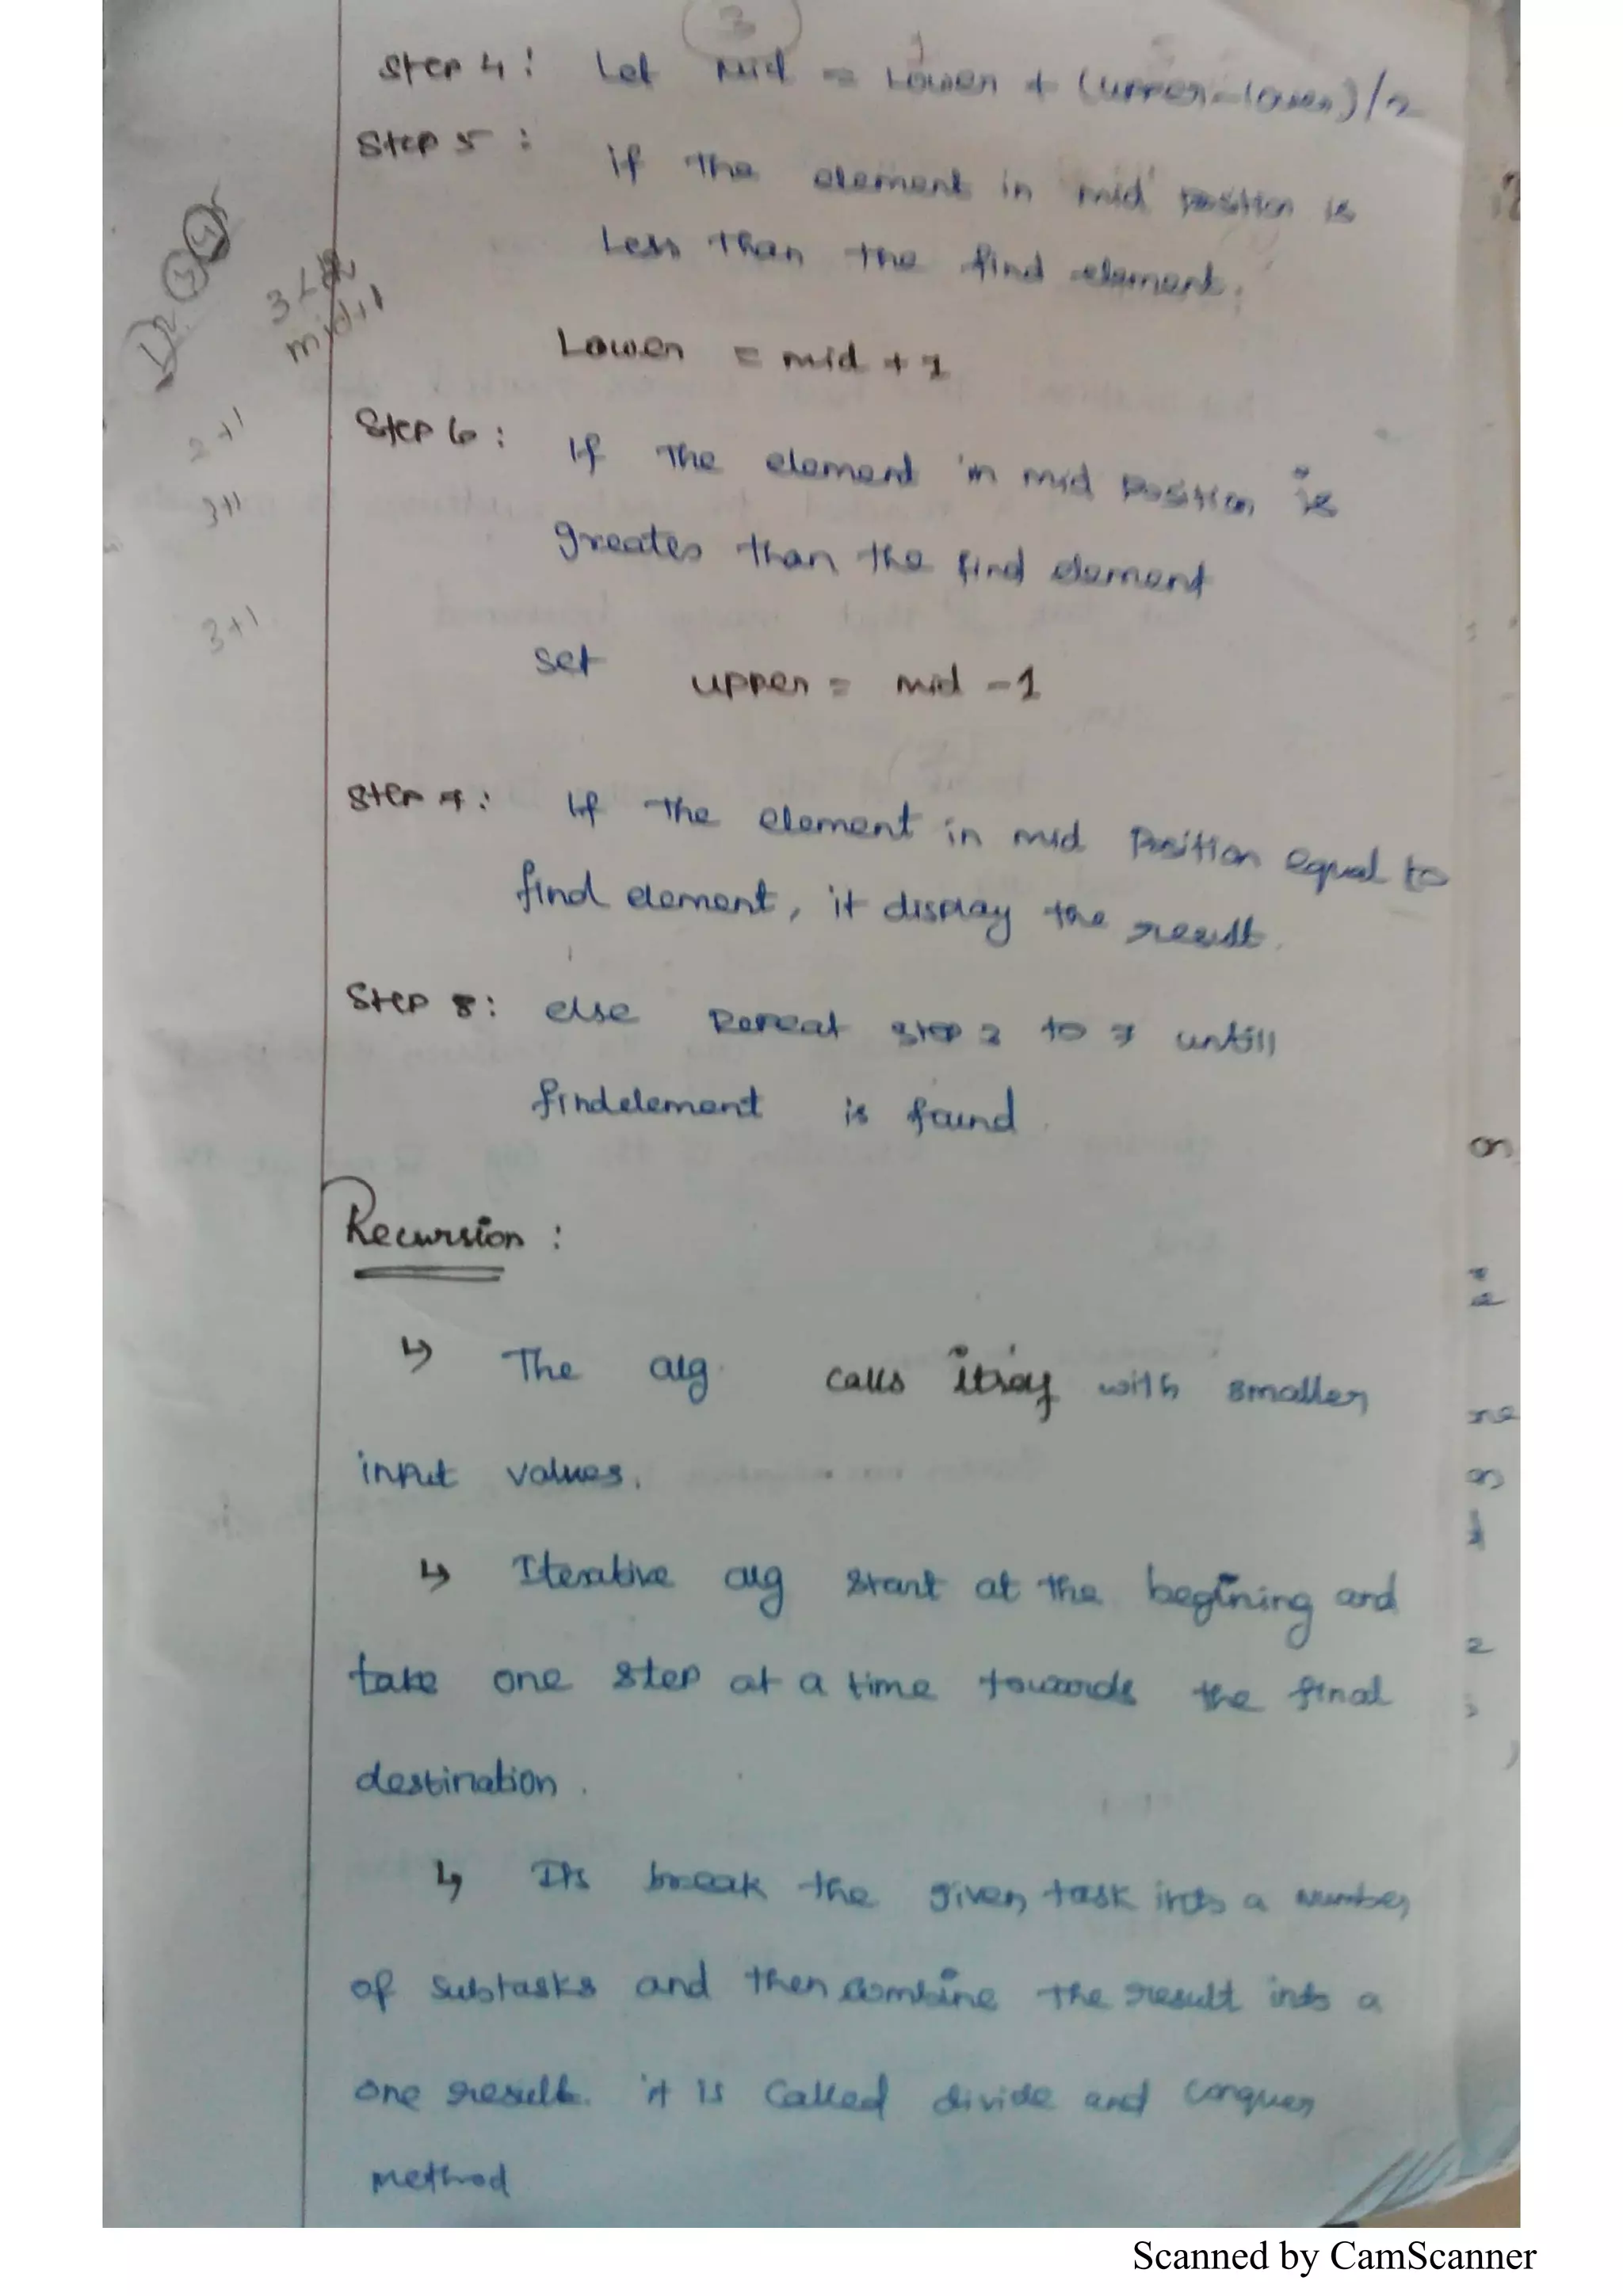 3
Step 4: Let Mid = Lower + (upper-lower)/2
Step 5: if the element in mid position is
Less than the find element.
Lower = mid + 1
3 <
mid+1
1 2 3 4
2+1
Step 6: If The element in mid Position is
3+1
greater than the find element
3+1
set upper = mid - 1
Step 7: If The element in mid Position equal to
find element, it display the result.
Step 8: else Repeat step 2 to 7 untill
findelement is found.
Recursion :
↳ The alg. calls itself with smaller
input values.
↳ Iterative alg start at the begining and
take one step at a time towards the final
destination.
↳ Its break the given task into a number
of subtasks and then combine the result into a
one result. it is Called divide and conquer
method
Scanned by CamScanner